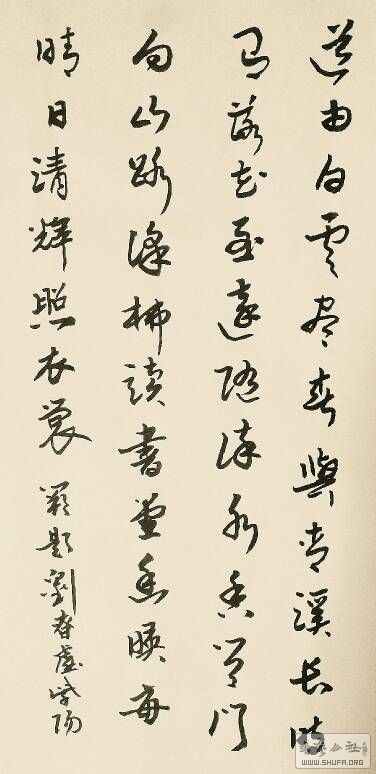 道由白雲盡春與青溪長時
有落花至遠隨流水香閒門
向山路深柳讀書堂幽暎每
晴日清輝照衣裳 闕題 劉昚虛 紫陽
书法公社
WWW.SHUFA.ORG